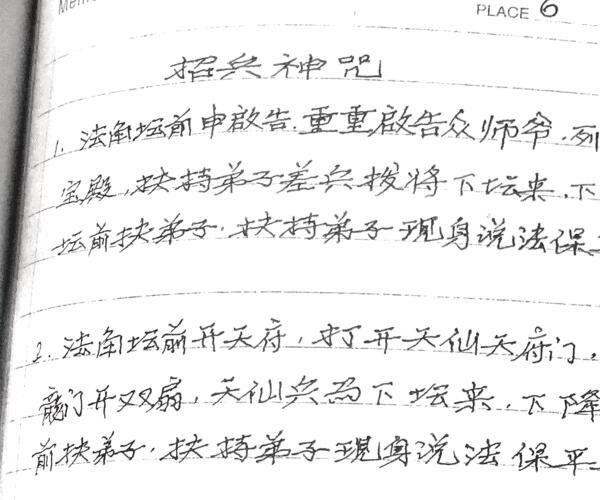 PLACE 6
招兵神咒
1. 法角坛前申啟告.重重啟告众师爷.列
宝殿,扶持弟子差兵拨将下坛来.下
坛前扶弟子.扶持弟子现身说法保
2. 法角坛前开天府,打开天仙天府门,
龍门开双扇,天仙兵马下坛来,下降
前扶弟子.扶持弟子现身说法保平